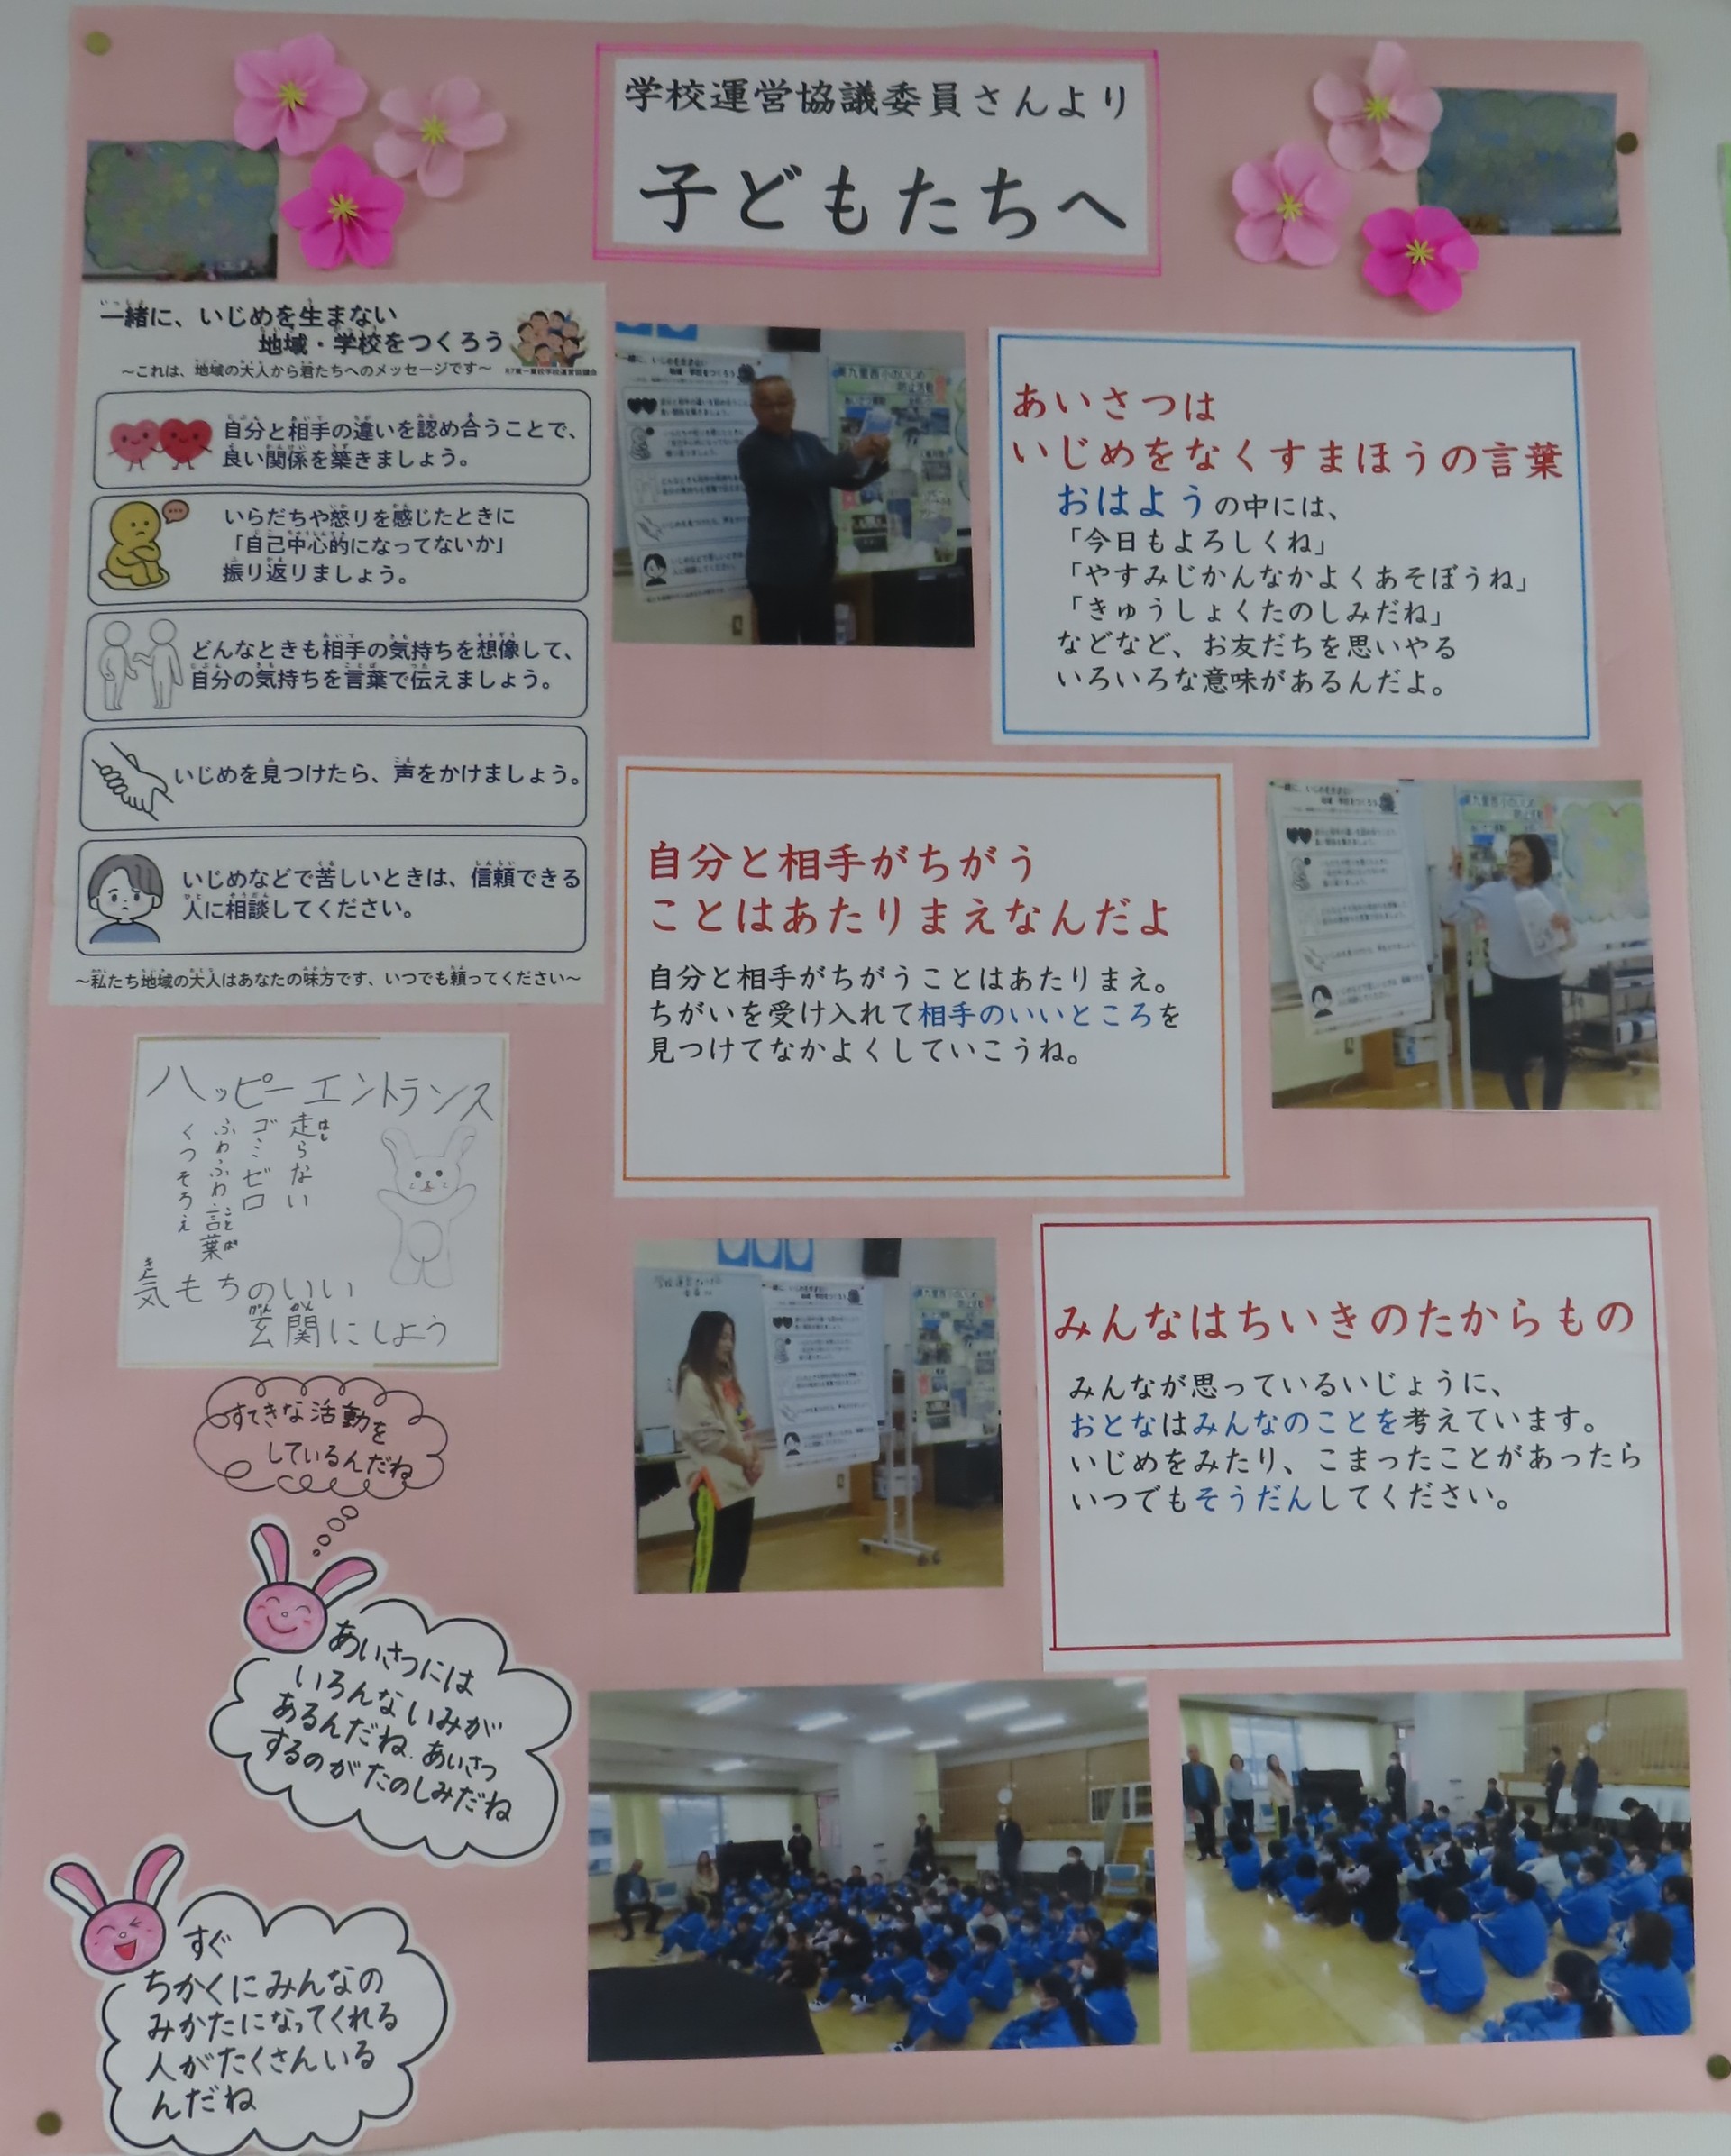 学校運営協議委員さんより
子どもたちへ
一緒に、いじめを生まない
地域・学校をつくろう
～これは、地域の大人から君たちへのメッセージです～
自分と相手の違いを認め合うことで、
良い関係を築きましょう。
いらだちや怒りを感じたときに
「自己中心的になってないか」
振り返りましょう。
どんなときも相手の気持ちを想像して、
自分の気持ちを言葉で伝えましょう。
いじめを見つけたら、声をかけましょう。
いじめなどで苦しいときは、信頼できる
人に相談してください。
～私たち地域の大人はあなたの味方です、いつでも頼ってください～
あいさつは
いじめをなくすまほうの言葉
おはようの中には、
「今日もよろしくね」
「やすみじかんなかよくあそぼうね」
「きゅうしょくたのしみだね」
などなど、お友だちを思いやる
いろいろな意味があるんだよ。
自分と相手がちがう
ことはあたりまえなんだよ
自分と相手がちがうことはあたりまえ。
ちがいを受け入れて相手のいいところを
見つけてなかよくしていこうね。
みんなはちいきのたからもの
みんなが思っているいじょうに、
おとなはみんなのことを考えています。
いじめをみたり、こまったことがあったら
いつでもそうだんしてください。
ハッピーエントランス
走らない
ゴミゼロ
ふわふわ言葉
くつそろえ
気もちのいい
玄関にしよう
すてきな活動を
しているんだね
あいさつには
いろんないみが
あるんだね。あいさつ
するのがたのしみだね
すぐ
ちかくにみんなの
みかたになってくれる
人がたくさんいる
んだね